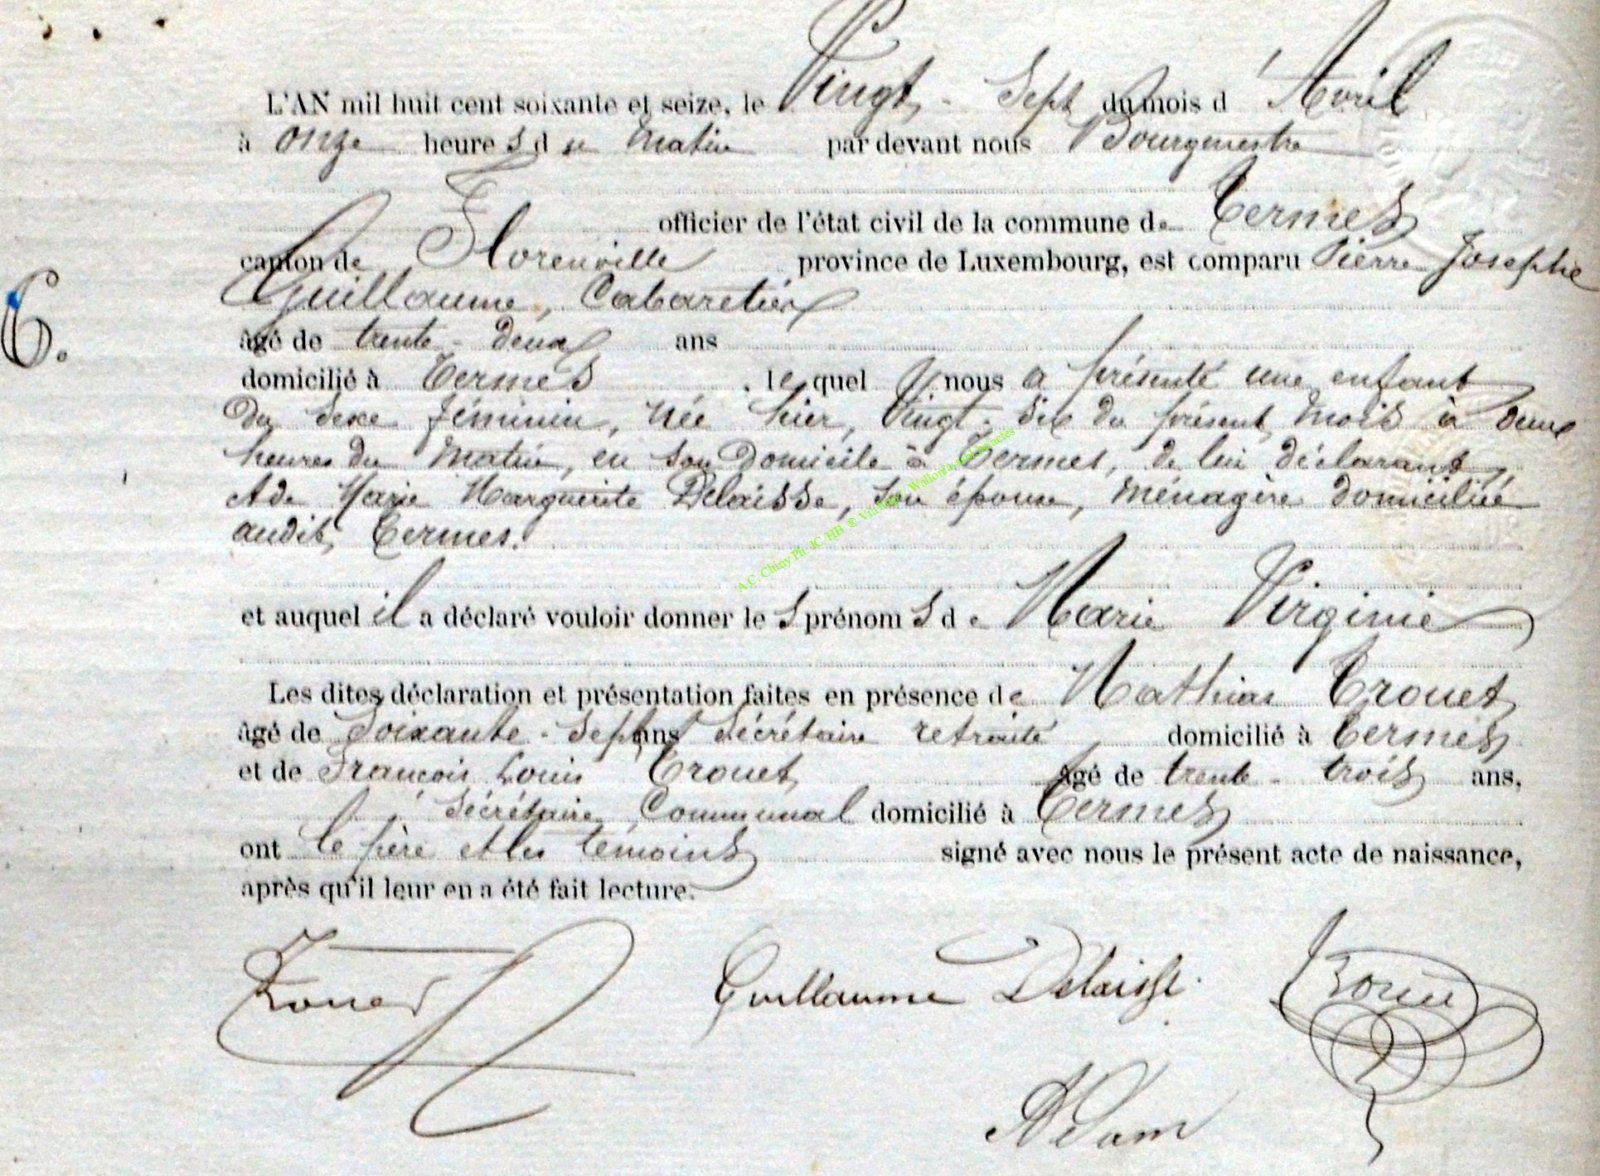 L'AN mil huit cent soixante et seize, le Vingt-Sept du mois d'Avril
à onze heures du matin par devant nous Bourgmestre
officier de l'état civil de la commune de Termes
canton de Florenville province de Luxembourg, est comparu Pierre Josephe
Guillaume, Cabaretier
âgé de trente-deux ans
6.
domicilié à Termes, lequel nous a présenté une enfant
du sexe féminin, née hier, Vingt-Six du présent mois à deux
heures du matin, en son Domicile à Termes, de lui déclarant
et de Marie Marguerite Delaisse, son épouse, ménagère domiciliée
audit Termes.
A.C. Chiny Ph JC HB
et auquel il a déclaré vouloir donner les prénoms de Marie Virginie
Les dites déclaration et présentation faites en présence de Mathias Trouet
âgé de Soixante-Sept ans Sécrétaire retraité domicilié à Termes
et de François Louis Trouet âgé de trente-trois ans,
Sécrétaire Communal domicilié à Termes
ont le père et les témoins signé avec nous le présent acte de naissance,
après qu'il leur en a été fait lecture.
Trouet Guillaume Delaisse Trouet
Adam